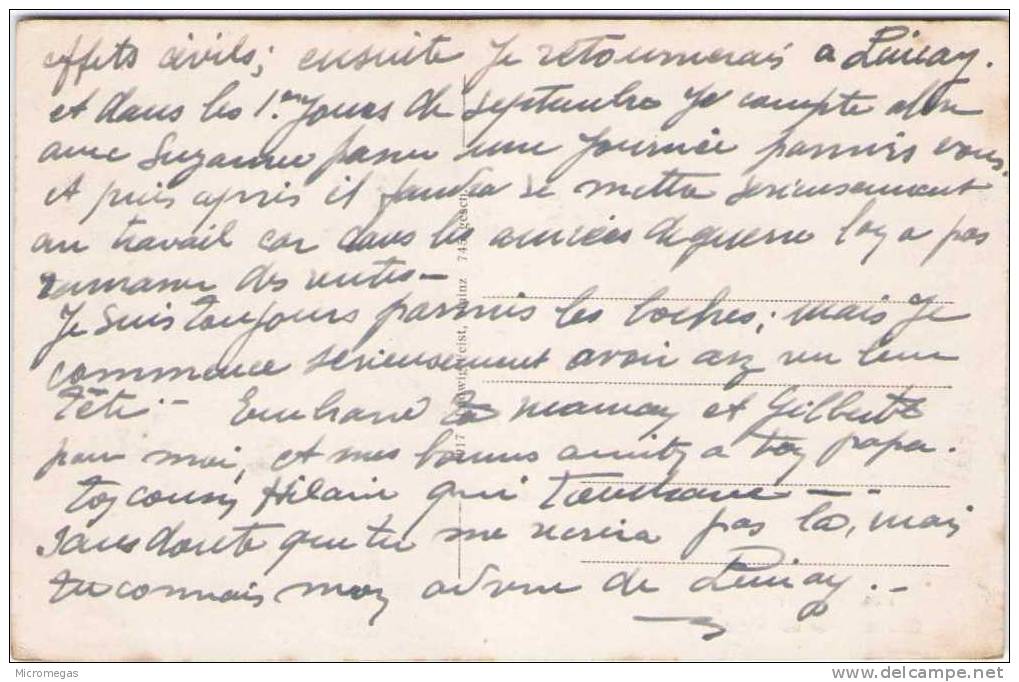 effets civils; ensuite Je retournerais a Luçay.
et dans les 1er Jours de Septembre Je compte
avec Suzanne passer une Journée parmis vous.
et puis après il faudra se mettre serieusement
au travail car dans les années de guerre
des rentes —
Je Suis toujours parmis les boches; mais Je
commence serieusement avoir
tête. — Embrasse ta maman et Gilbert
pour moi, et mes bonnes a ton papa.
ton cousin Hilaire qui t'embrasse — -
Sans doute que tu me pas la, mais
tu connais mon adresse de Luçay. —
1917 Ludwig Feist, Mainz 745 gesch.
Micromegas
www.delcampe.net